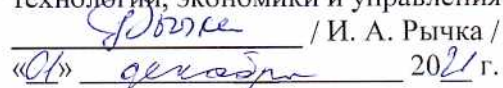 технологии, экономики и управления
/ И. А. Рычка /
«01» декабря 2021 г.